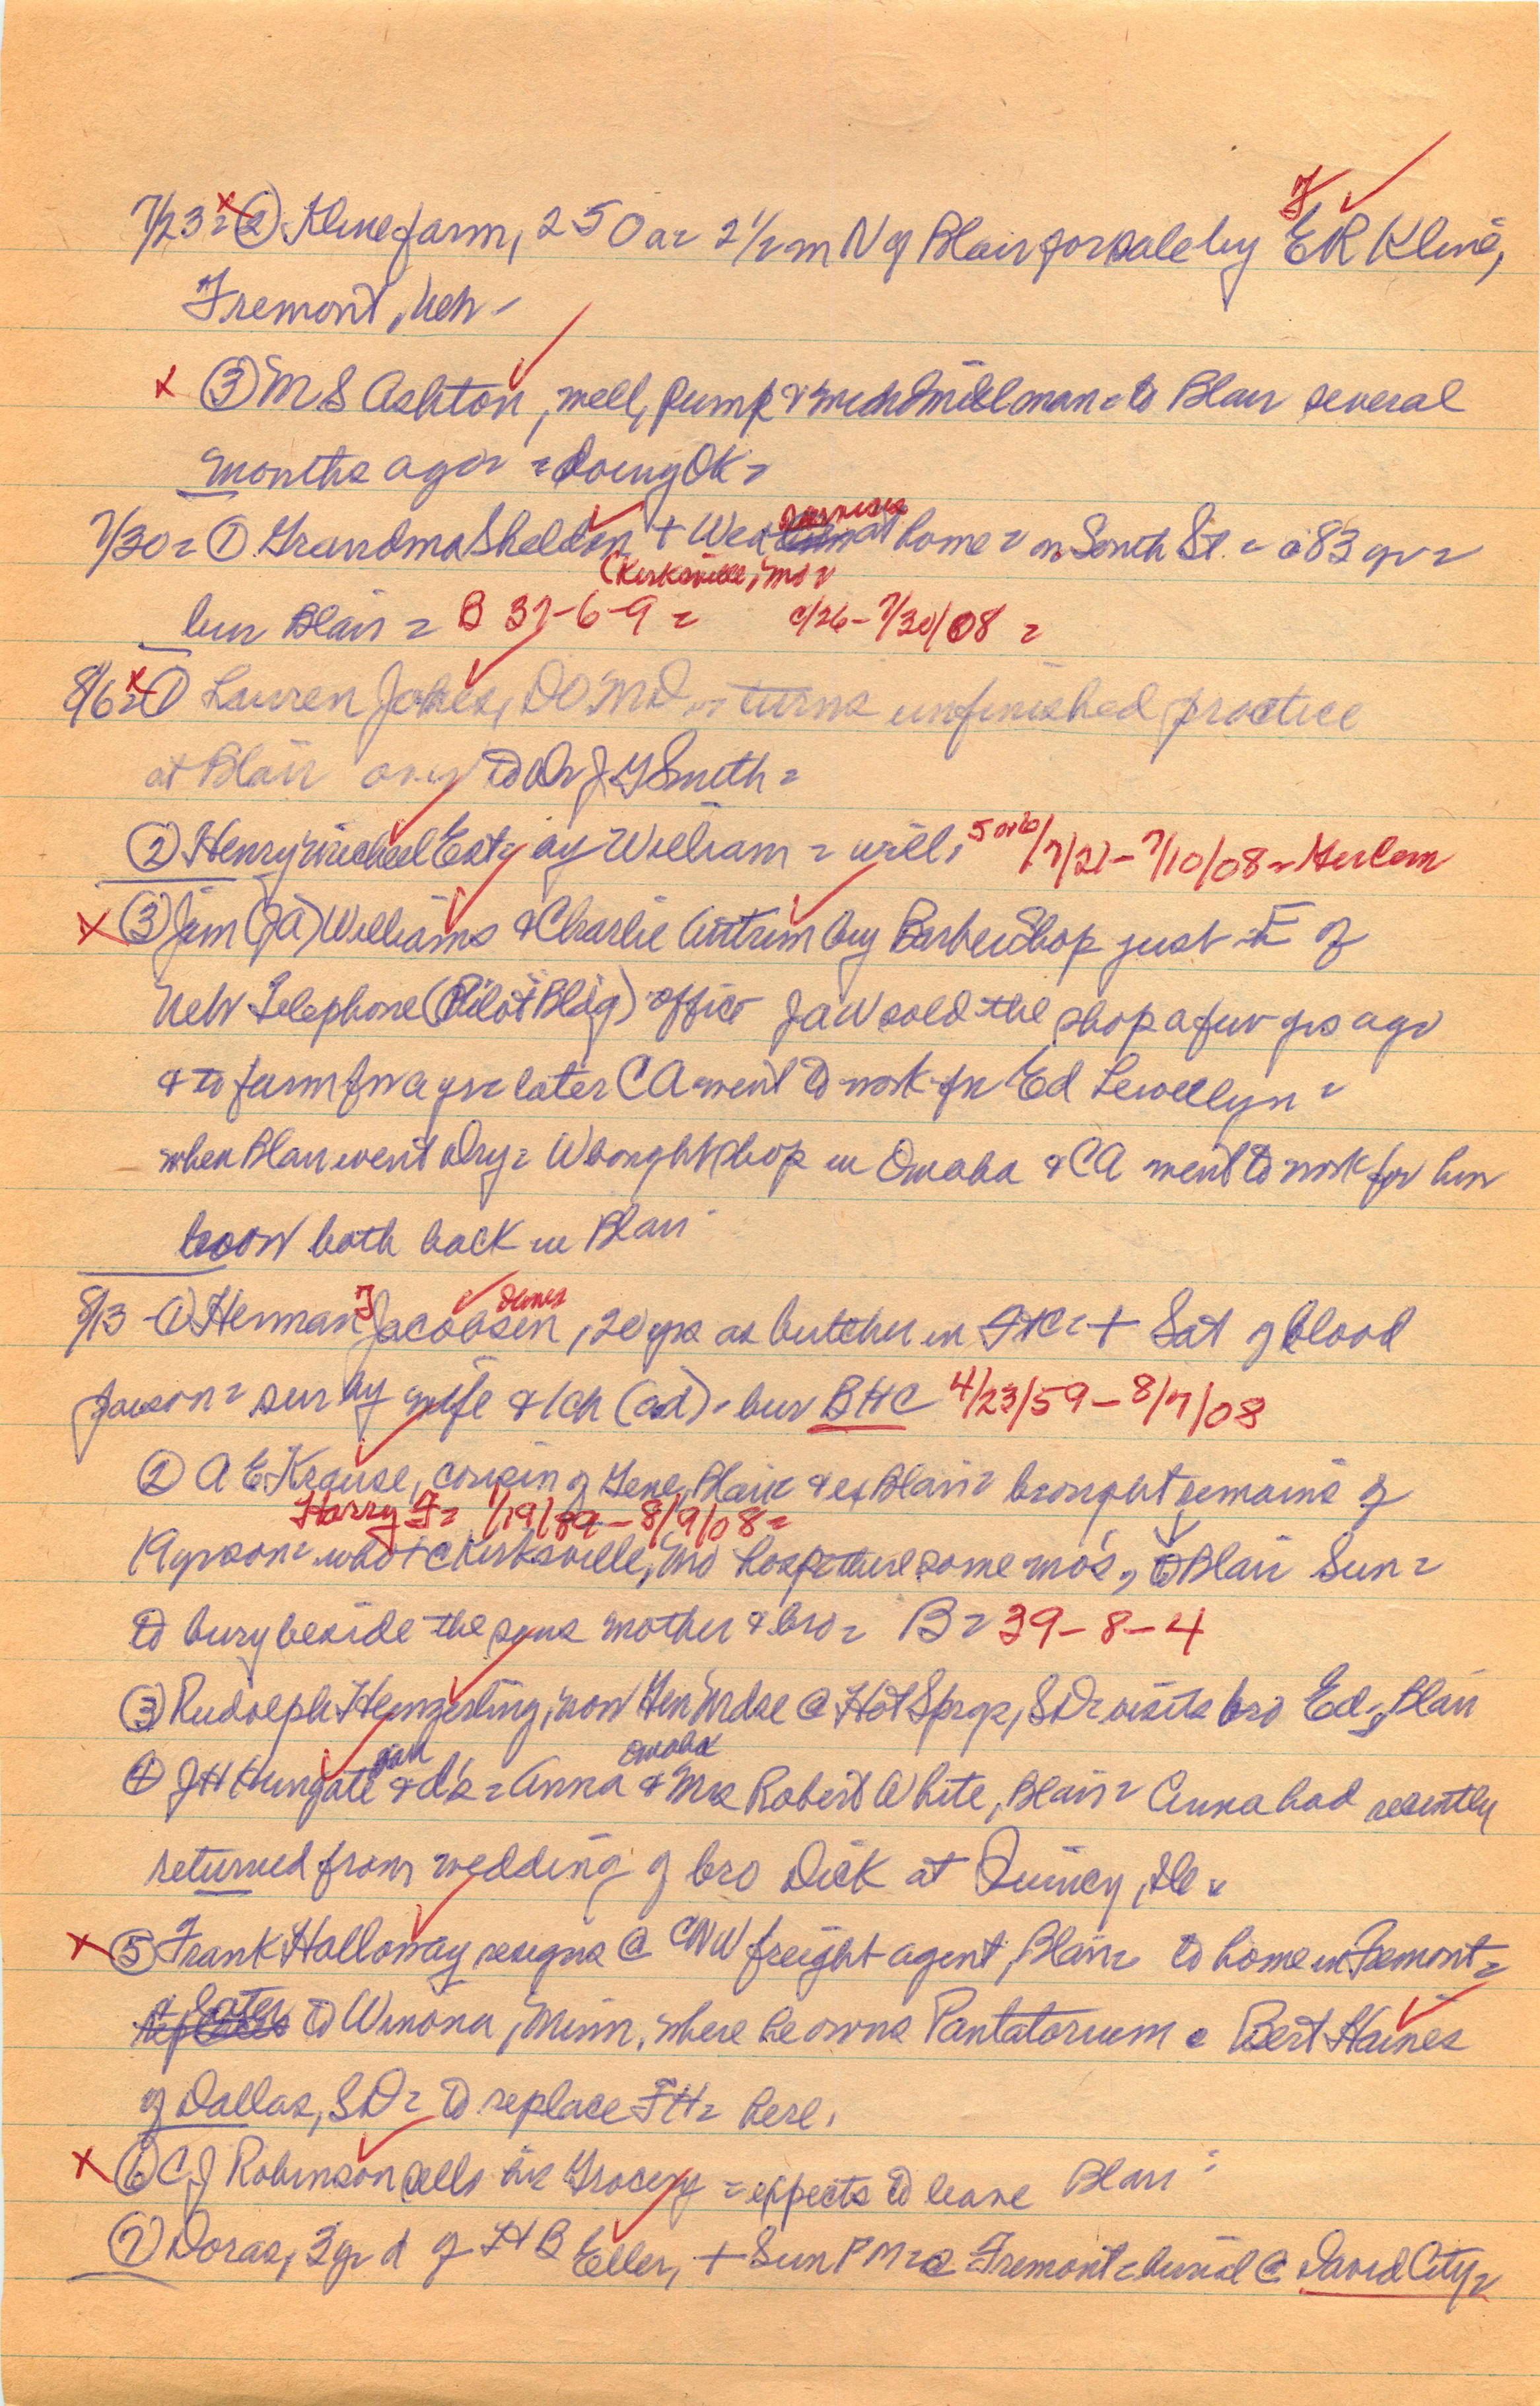 7/23 = x ② Kline farm, 250 a = 2 1/2 m N of Blair for sale by E R Kline,
Fremont, Neb -
x ③ M S Ashton, well, pump & windmill man = to Blair several
months ago = doing OK =
7/30 = ① Grandma Sheldon + Wed at home = on South St. = a 83 yr =
(Kirksville, Mo =
bur Blair = B 37-6-9 = c/26 - 7/30/08 =
8/6 = x ① Lauren Jones, DO MD = turns unfinished practice
at Blair over to Dr J G Smith =
② Henry Est = by William = will, 5 or 6/7/21 - 7/10/08 = Herlem
x ③ Jim (JA) Williams & Charlie Antrim buy Barber Shop just E of
Neb Telephone (Pilot Bldg) office JAW sold the shop a few yrs ago
& to farm for a yr = later CA went to work for Ed Lewellyn =
when Blair went dry = W bought shop in Omaha & CA went to work for him
now both back in Blair
Danes
8/13 - ① Herman J Jacobsen, 20 yrs as butcher in + Sat of blood
poison = sur by wife & 1 ch (ad) - bur BHC 4/23/59 - 8/7/08
② A E Krause, cousin of Gene, Blair & ex Blair = brought remains of
Harry F = 1/19/89 - 8/9/08 =
19 yr son = who + @ Kirksville, Mo hosp there some mo's, to Blair Sun =
to bury beside the sons mother & bro = B = 39-8-4
③ Rudolph Hengerling, now Gen Mdse @ Hot Sprgs, SD = visits bro Ed, Blair
Omaha
④ J H Hungate & d's = Anna & Mrs Robert White, Blair = Anna had recently
returned from wedding of bro Dick at Quincy, Ill
x ⑤ Frank Halloway resigns @ CNW freight agent, Blair = to home in Fremont =
& later to Winona, Minn, where he owns Pantatorium = Bert Haines
of Dallas, SD = to replace FH = here.
x ⑥ C J Robinson sells his Grocery = expects to leave Blair =
⑦ Doras, 3 yr d of H B Eller, + Sun PM = @ Fremont = burial @ David City =